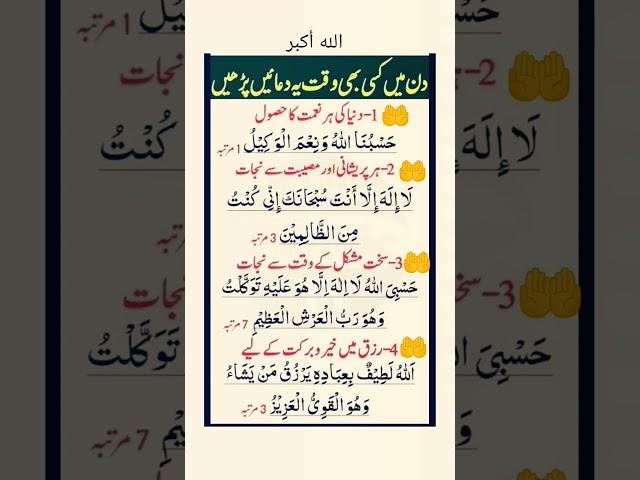 الله أكبر
دن میں کسی بھی وقت یہ دعائیں پڑھیں
1-دنیا کی ہر نعمت کا حصول
حَسْبُنَا اللهُ وَنِعْمَ الْوَكِيْلُ 1 مرتبہ
2-ہر پریشانی اور مصیبت سے نجات
لَا إِلَهَ إِلَّا أَنْتَ سُبْحَانَكَ إِنِّي كُنْتُ
مِنَ الظَّالِمِيْنَ 3 مرتبہ
3-سخت مشکل کے وقت سے نجات
حَسْبِيَ اللهُ لَا إِلٰهَ إِلَّا هُوَ عَلَيْهِ تَوَكَّلْتُ
وَهُوَ رَبُّ الْعَرْشِ الْعَظِيْمِ 7 مرتبہ
4-رزق میں خیر و برکت کے لیے
اَللهُ لَطِيْفٌ بِعِبَادِهِ يَرْزُقُ مَنْ يَشَاءُ
وَهُوَ الْقَوِيُّ الْعَزِيْزُ 3 مرتبہ